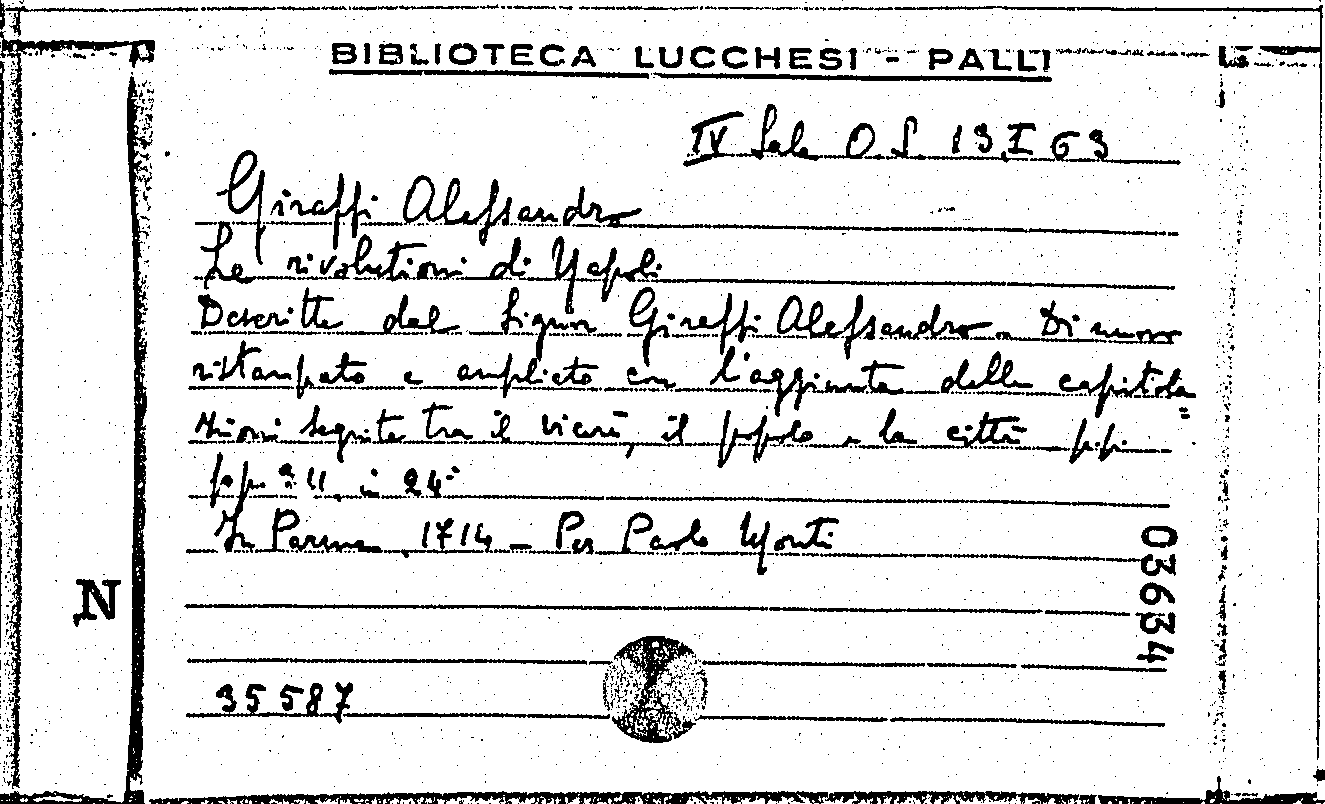 BIBLIOTECA LUCCHESI - PALLI
IV Sala O.S. 13.I 63
Giraffi Alessandro
Le rivolutioni di Napoli
Descritte dal Signor Giraffi Alessandro. Di nuovo
ristampato e ampliato con l'aggiunta delle capitola=
zioni seguite tra il vicerè, il popolo e la città pp.
in 24°
In Parma 1714 - Per Paolo Monti
03634
N
35587